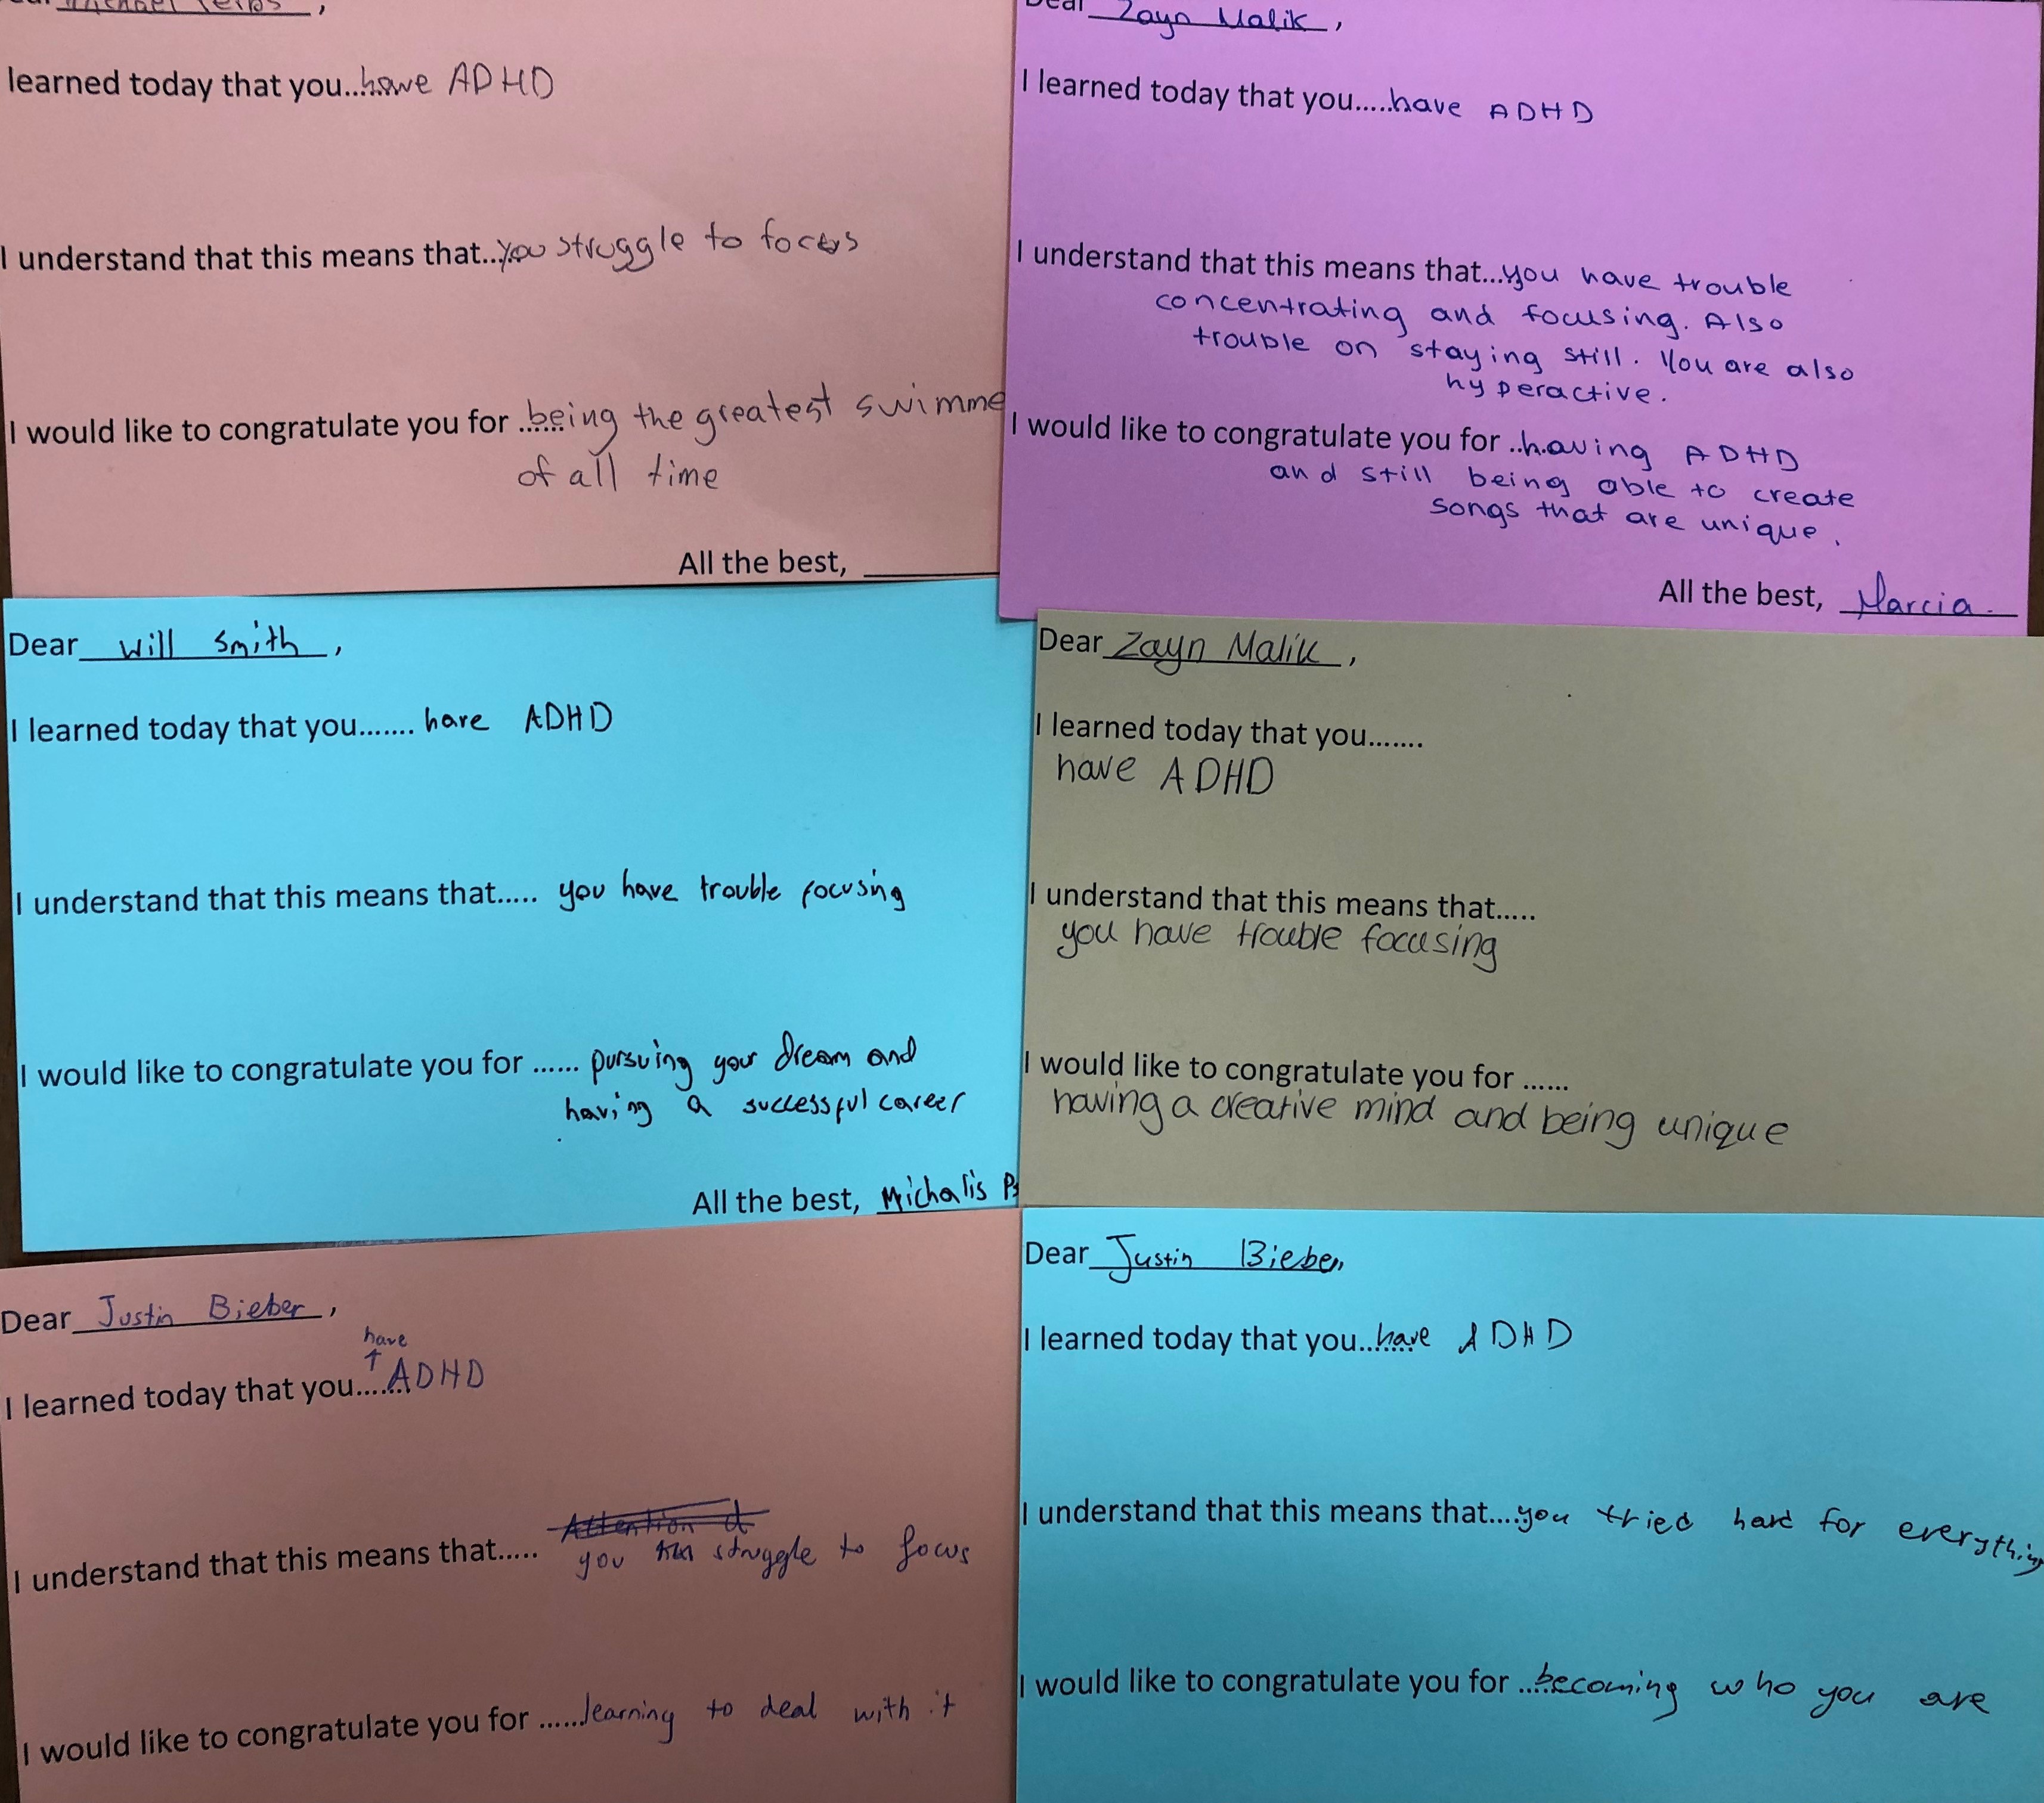 Michael Pelps,
learned today that you...have ADHD
I understand that this means that...you struggle to focus
I would like to congratulate you for ......being the greatest swimme
of all time
All the best,
Dear Zayn Malik,
I learned today that you.....have ADHD
I understand that this means that...you have trouble
concentrating and focusing. Also
trouble on staying still. You are also
hyperactive.
I would like to congratulate you for ..having ADHD
and still being able to create
songs that are unique.
All the best, Marcia
Dear Will Smith,
I learned today that you....... have ADHD
I understand that this means that..... you have trouble focusing
I would like to congratulate you for ...... pursuing your dream and
having a successful career
All the best, Michalis
Dear Zayn Malik,
I learned today that you.......
have ADHD
I understand that this means that.....
you have trouble focusing
I would like to congratulate you for ......
having a creative mind and being unique
Dear Justin Bieber,
have
I learned today that you.......ADHD
Attention d
I understand that this means that..... you struggle to focus
I would like to congratulate you for ......learning to deal with it
Dear Justin Bieber,
I learned today that you.......have ADHD
I understand that this means that....you tried hard for everything
I would like to congratulate you for ......becoming who you are